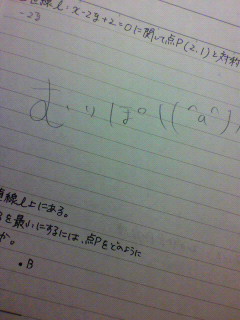 直線ℓ:x-2y+2=0に関して点P(2,1)と対称
-2y
む・りぽ\((^a^)
直線ℓ上にある。
を最小にするには、点Pをどのように
か。
・B